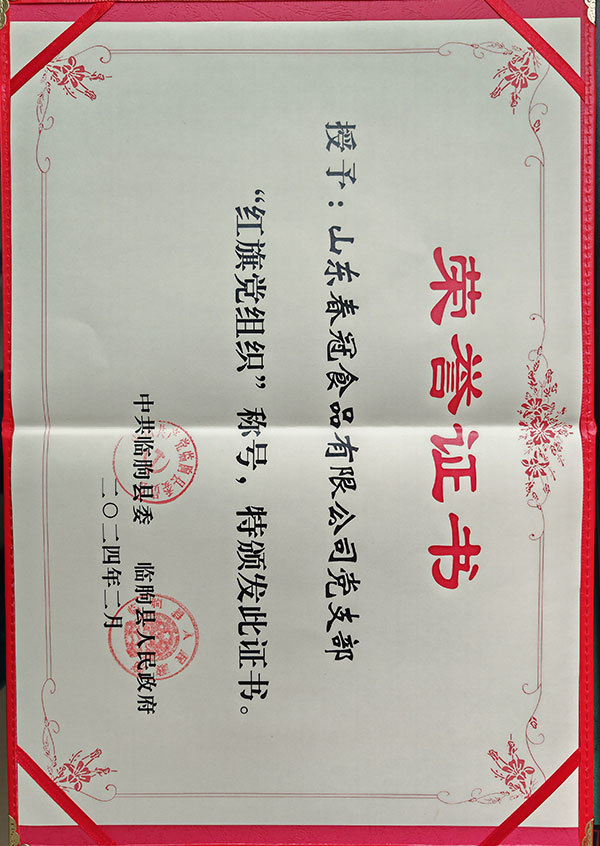 荣誉证书
授予：山东春冠食品有限公司党支部
“红旗党组织”称号，特颁发此证书。
中共临朐县委 临朐县人民政府
二〇二四年二月